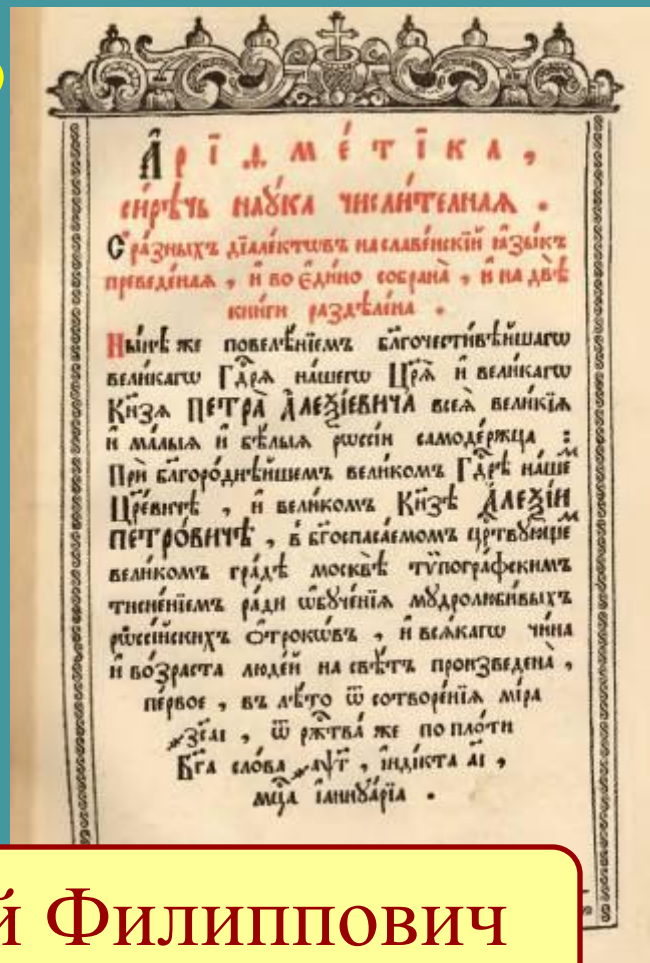 А҆рїѳме́тїка,
си́рѣчь наꙋ́ка числи́телнаѧ.
С̾ ра́зныхъ дїале́ктѡвъ на славе́нскїй ꙗ҆зы́къ
преведе́наѧ, и҆ во є҆ди́но собрана̀, и҆ на двѣ̀
кни́ги раздѣле́на.
Нн҃ѣ же повелѣ́нїемъ бл҃гочести́вѣйшагѡ
вели́кагѡ Гд҇рѧ на́шегѡ Цр҃ѧ̀ и҆ вели́кагѡ
Кн҃зѧ ПЕТРА̀ А҆ЛЕѮІ́ЕВИЧА всеѧ̀ вели́кїѧ
и҆ ма́лыѧ и҆ бѣ́лыѧ рѡссі́и самоде́ржца :
Прѝ бл҃горо́днѣйшемъ вели́комъ Гд҇рѣ̀ на́шеⷨ
Цр҃е́вичѣ, и҆ вели́комъ Кн҃зѣ А҆ЛЕѮІ́И
ПЕТРО́ВИЧѢ, в̾ бг҃оспаса́емомъ цр҇твꙋ́ющеⷨ
вели́комъ гра́дѣ москвѣ̀ тѷпогра́фскимъ
тисне́нїемъ ра́ди ѡ҆бꙋче́нїѧ мꙋдролюби́выхъ
рѡссі́йскихъ ѻ҆́трокѡвъ, и҆ всѧ́кагѡ чи́на
и҆ во́зраста люде́й на свѣ́тъ произведена̀,
пе́рвое, въ лѣ́то ѿ сотворе́нїѧ мі́ра
҂зсаі, ѿ рж҇тва̀ же по пло́ти
Бг҃а сло́ва ҂аѱг, і҆нді́кта аі,
мц҇а і҆аннꙋа́рїа.
й Филиппович